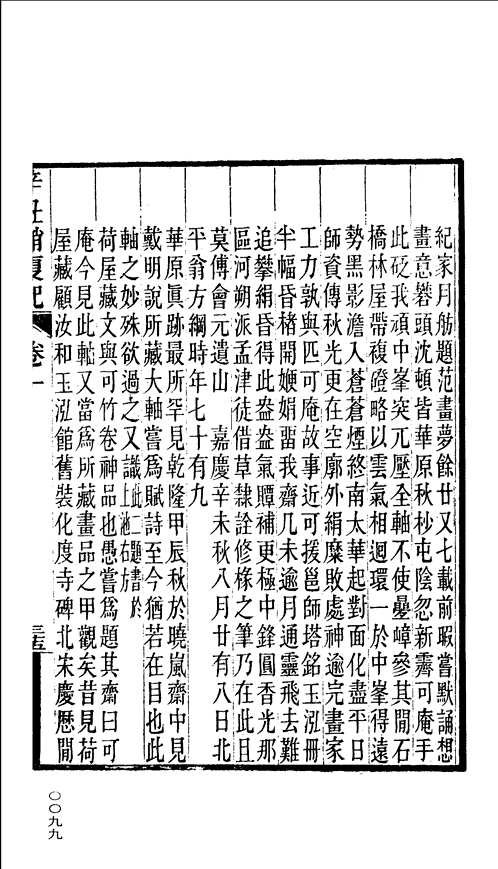 紀家月舫題范畫夢餘廿又七載前暇嘗默誦想
畫意礬頭沈頓皆華原秋杪屯陰忽新霽可庵手
此砭我頑中峯突兀壓全軸不使疊嶂參其閒石
橋林屋帶複磴略以雲氣相迴環一於中峯得遠
勢黑影澹入蒼蒼煙終南太華起對面化盡平日
師資傳秋光更在空廓外絹糜敗處神逾完畫家
工力敦與匹可庵故事近可援邕師塔銘玉泓冊
半幅昏楮開嬾娟畱我齋几未逾月通靈飛去難
追攀絹昏得此盎盎氣賸補更極中鋒圓香光那
區河朔派孟津徒借草隸詮修椽之筆乃在此且
莫傳會元遺山 嘉慶辛未秋八月廿有八日北
平翁方綱時年七十有九
華原眞跡最所罕見乾隆甲辰秋於曉嵐齋中見
戴明說所藏大軸嘗爲賦詩至今猶若在目也此
軸之妙殊欲過之又識此二題書於上池右方
荷屋藏文與可竹卷神品也愚嘗爲題其齋曰可
庵今見此軸又當爲所藏畫品之甲觀矣昔見荷
屋藏顧汝和玉泓館舊裝化度寺碑北宋慶歷閒
辛丑銷夏記
卷一
〇〇九九